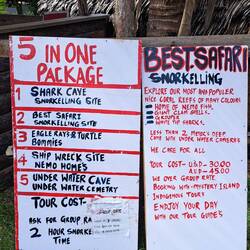 5 IN ONE
PACKAGE
1 SHARK CAVE
SNORKELLING SITE
2 BEST SAFARI
SNORKELLING SITE
3 EAGLE RAYS & TURTLE
BOMMIES
4 SHIP WRECK SITE
NEMO HOMES
5 UNDER WATER CAVE
UNDER WATER CEMETRY
TOUR COST-
ASK FOR GROUP RA
2 HOUR SNORKE
TIME
BEST SAFARI
SNORKELLING
EXPLORE OUR MOST AND POPULER
NICE CORAL REEFS OF MANY COLOURS
HOME OF NEMO FISH
GIANT CLAM SHELLS
GROUPER
WHITE TIP SHARKS
LESS THAN 2 METRES DEEP
CAVE WITH UNDER WATER CAMERAS
WE CARE FOR ALL
TOUR COST - USD-30.00
AUD-45.00
WE OFER GROUP RATE
BOOKING WITH-MYSTERY ISLAND
INDIGENOUS TOURS
ENDJOY YOUR DAY
WITH OUR TOUR GUIDE'S